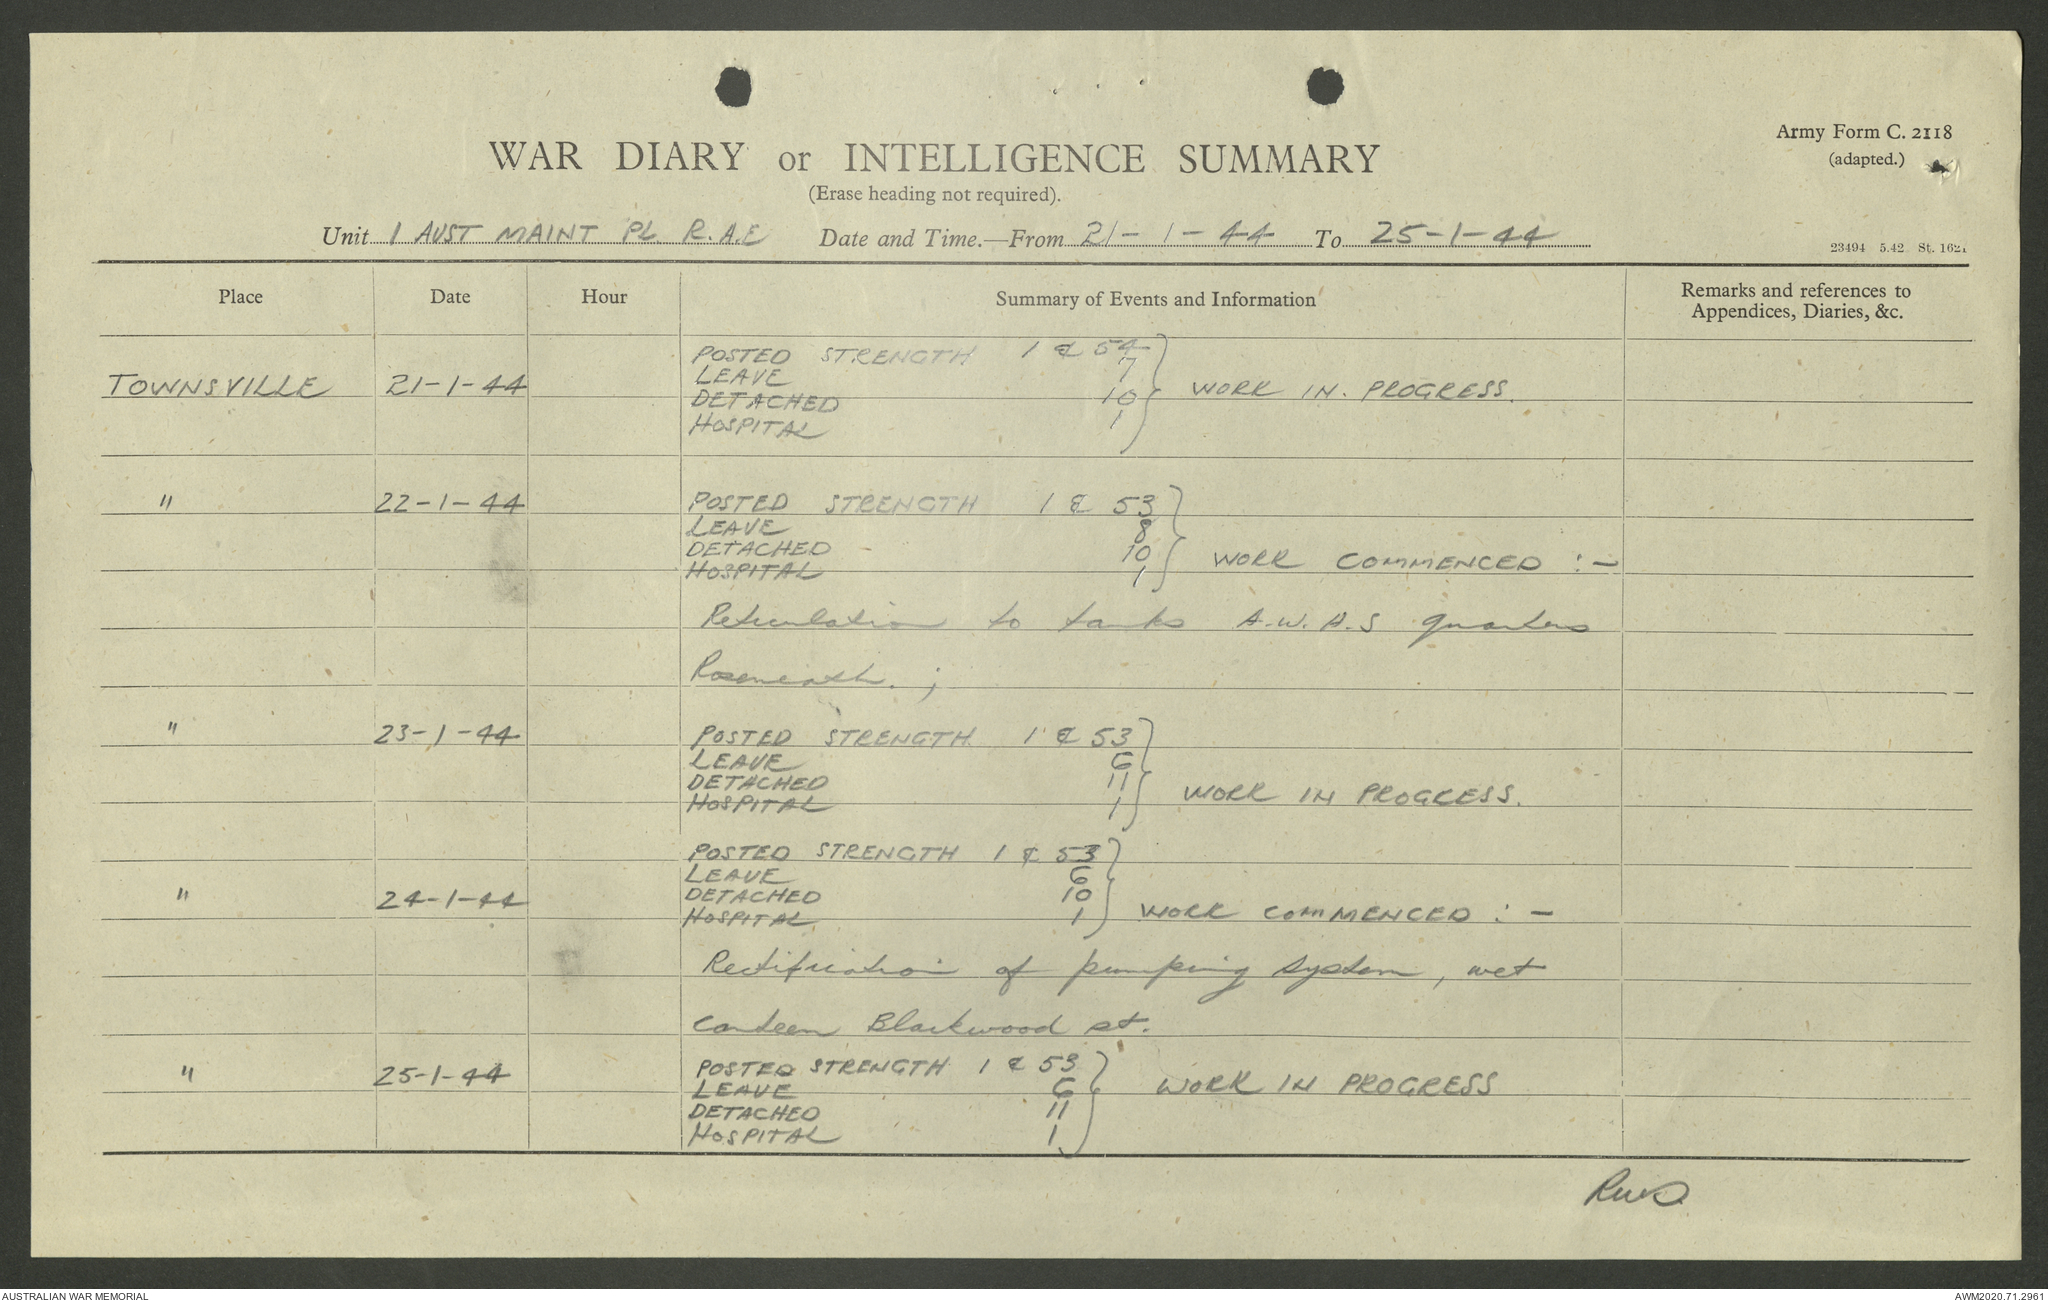 Army Form C. 2118
(adapted.)
WAR DIARY or INTELLIGENCE SUMMARY
(Erase heading not required).
Unit 1 AUST MAINT PL R.A.E Date and Time.—From 21-1-44 To 25-1-44
23494 5.42 St. 1621
Place Date Hour Summary of Events and Information Remarks and references to
Appendices, Diaries, &c.
POSTED STRENGTH 1 & 54
LEAVE 7
TOWNSVILLE 21-1-44 DETACHED 10 WORK IN. PROGRESS.
HOSPITAL 1
" 22-1-44 POSTED STRENGTH 1 & 53
LEAVE 8
DETACHED 10
HOSPITAL 1 WORK COMMENCED :-
Reticulation to tanks A.W.A.S quarters
Roseneath. ;
" 23-1-44 POSTED STRENGTH 1 & 53
LEAVE 6
DETACHED 11
HOSPITAL 1 WORK IN PROGRESS.
POSTED STRENGTH 1 & 53
LEAVE 6
" 24-1-44 DETACHED 10
HOSPITAL 1 WORK COMMENCED :-
Rectification of pumping system, wet
canteen Blackwood st.
" 25-1-44 POSTED STRENGTH 1 & 53
LEAVE 6 WORK IN PROGRESS
DETACHED 11
HOSPITAL 1
AUSTRALIAN WAR MEMORIAL
AWM2020.71.2961